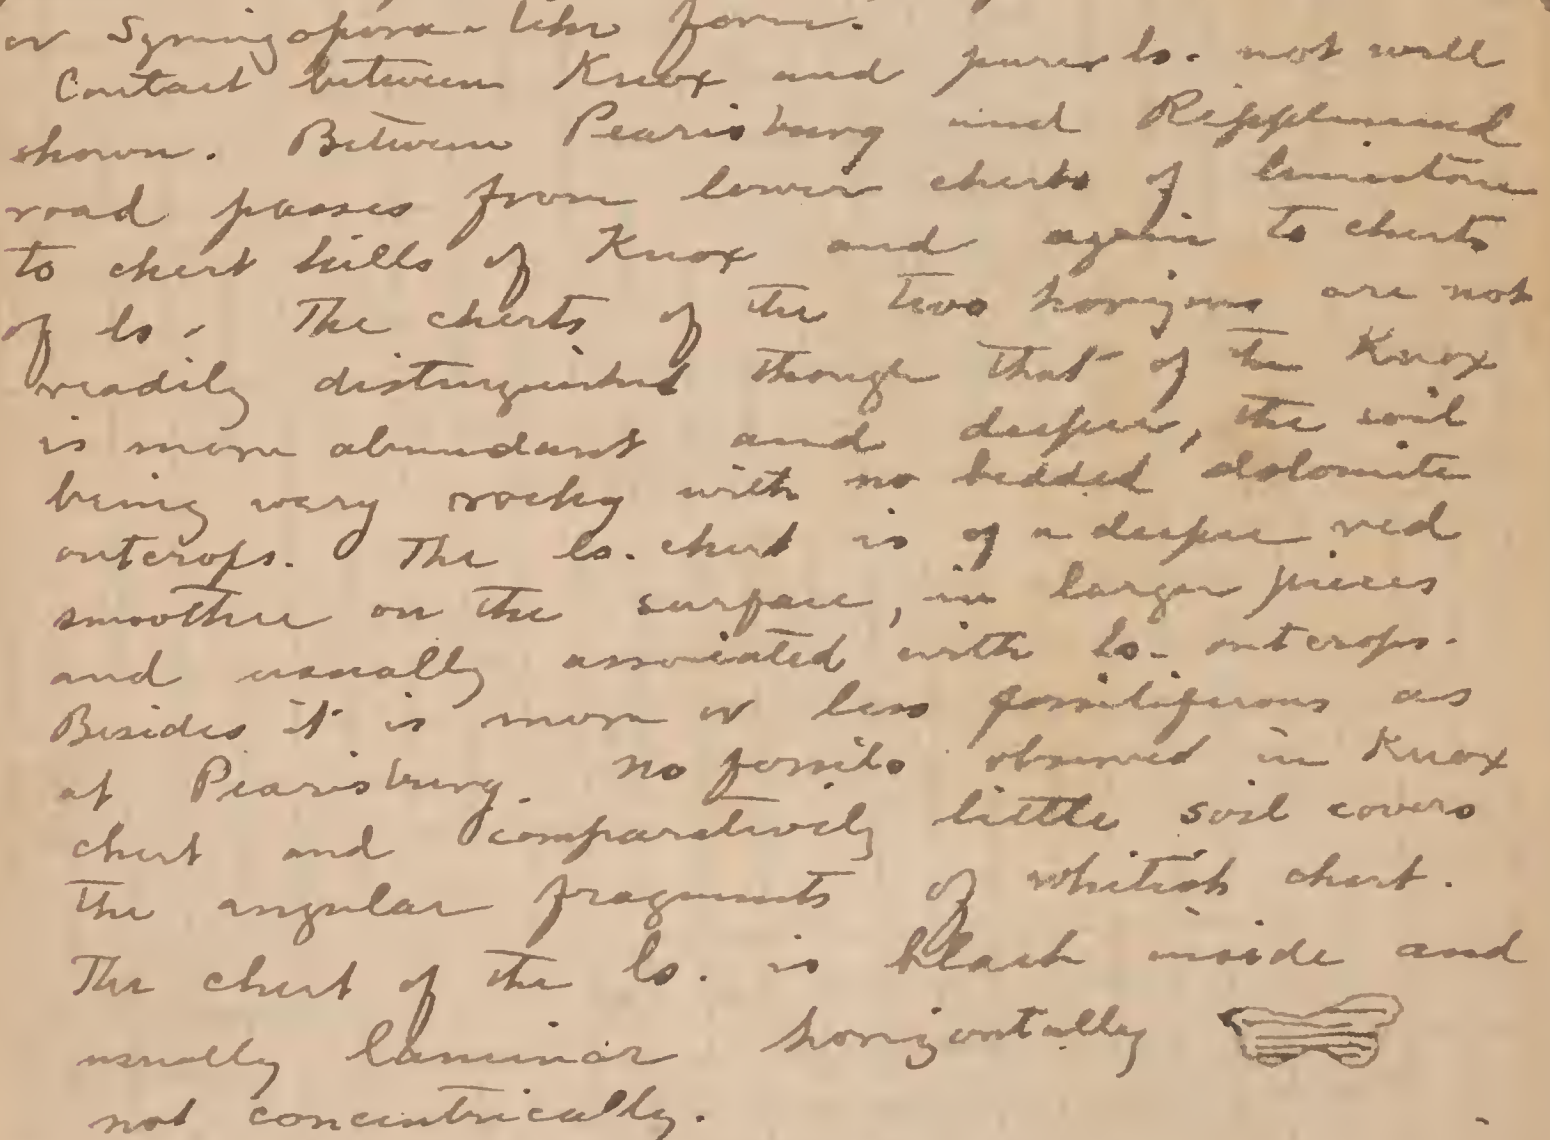 or Syringopora-like form.
Contact between Knox and purer ls. not well
shown. Between Pearisburg and Ripplemead
road passes from lower cherts of limestone
to chert hills of Knox and again to cherts
of ls. The cherts of the two horizons are not
readily distinguished though that of the Knox
is more abundant and deeper, the soil
being very rocky with no bedded dolomite
outcrops. The ls. chert is of a deeper red
smoother on the surface, in larger pieces
and usually associated with ls. outcrops.
Besides it is more or less fossiliferous as
at Pearisburg. No fossils observed in Knox
chert and comparatively little soil covers
the angular fragments of whitish chert.
The chert of the ls. is black inside and
usually laminar horizontally
not concentrically.